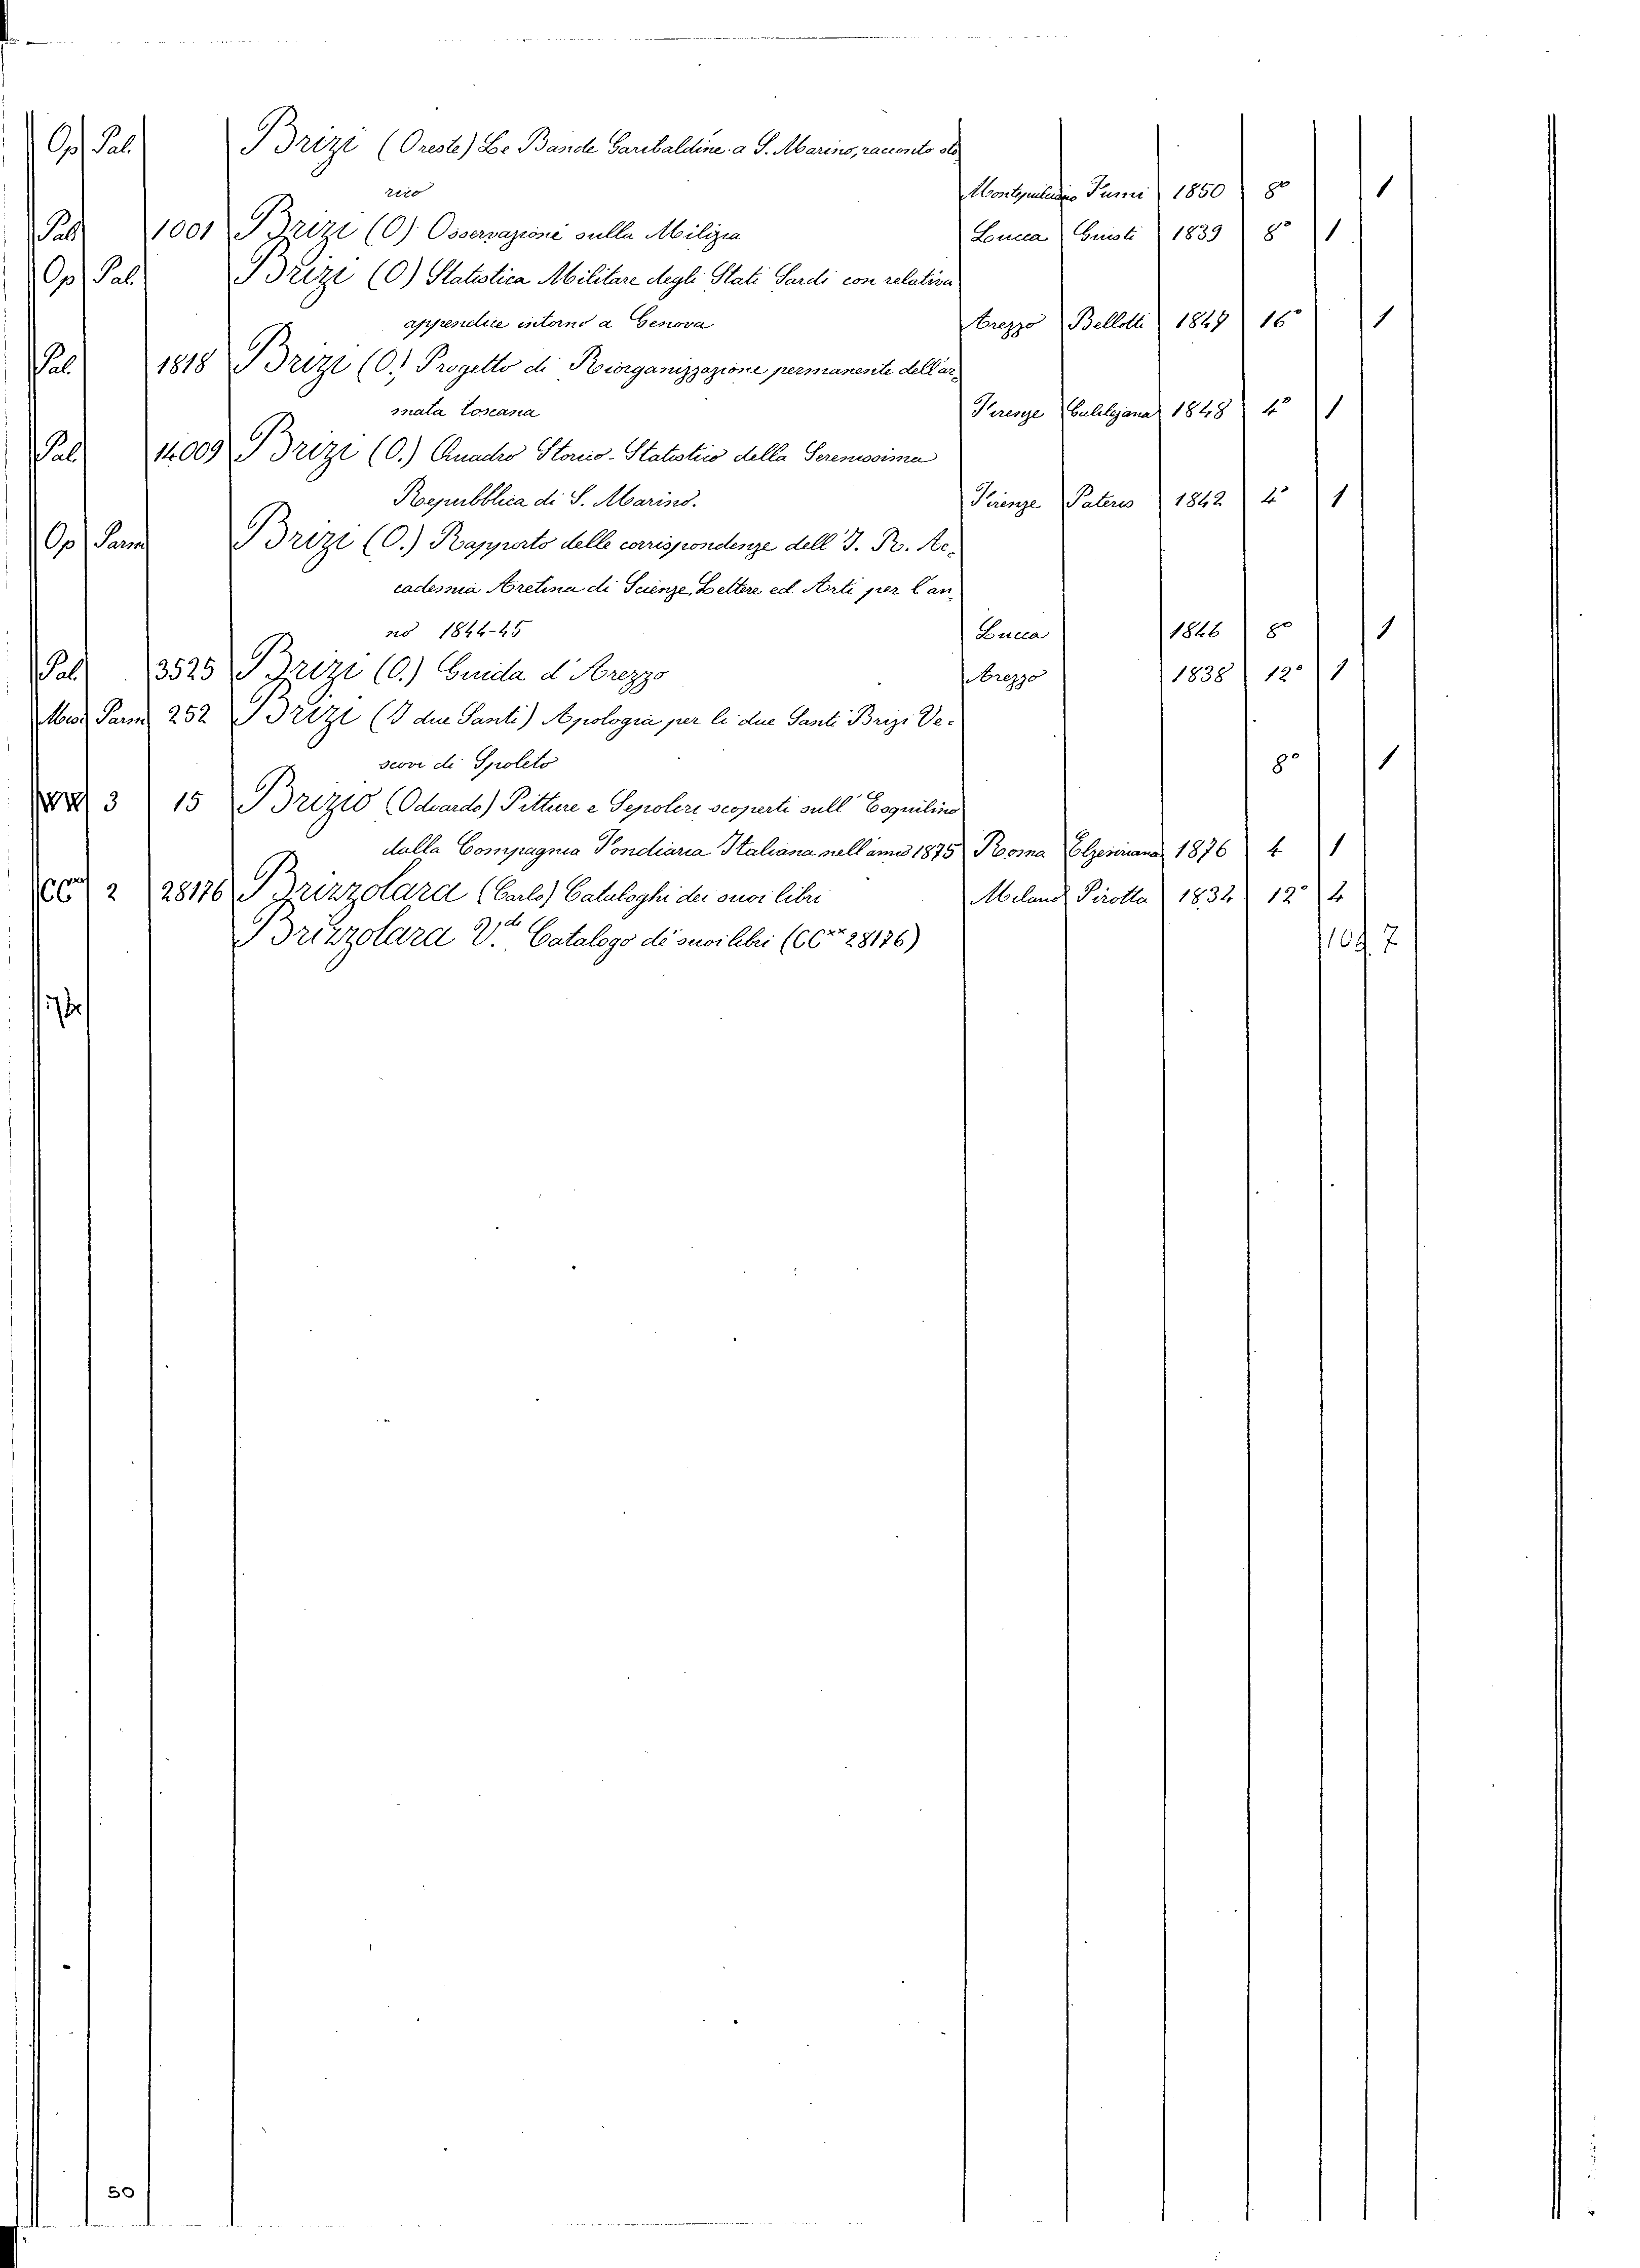 Op. Pal. Brizi (Oreste) Le Bande Garibaldine a S. Marino, racconto sto
rico Montepulciano Fumi 1850 8° 1
Pal. 1001 Brizi (O) Osservazioni sulla Milizia Lucca Giusti 1839 8° 1
Op. Pal. Brizi (O) Statistica Militare degli Stati Sardi con relativa
appendice intorno a Genova Arezzo Bellotti 1847 16° 1
Pal. 1818 Brizi (O.) Progetto di Riorganizzazione permanenti dell'ar
mata toscana Firenze Galilejana 1848 4° 1
Pal. 14009 Brizi (O.) Quadro Storico-Statistico della Serenissima
Repubblica di S. Marino. Firenze 1842 4° 1
Op. Parm Brizi (O.) Rapporto delle corrispondenze dell' I. R. Ac-
cademia Aretina di Scienze, Lettere ed Arti per l'an
no 1844-45 Lucca 1846 8° 1
Pal. 3525 Brizi (O.) Guida d'Arezzo Arezzo 1838 12° 1
Parm 252 Brizi (I due Santi) Apologia per li due Santi Brizi Ve-
scovi di Spoleto 8° 1
3 15 Brizio (Odoardo) Pitture e Sepolcri scoperti sull' Esquilino
dalla Compagnia Fondiaria Italiana nell'anno 1875 Roma Elzeviriana 1876 4 1
CC 2 28176 Brizzolara (Carlo) Cataloghi dei suoi libri Milano Pirotta 1834 12° 4
Brizzolara V.de Catalogo di suoi libri (CC 28176)
109 7
50